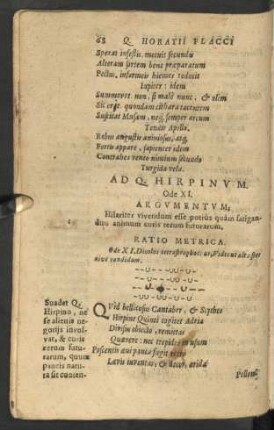 68 Q HORATII FLACCI
Sperat infestis, metuit secundis
Alteram sortem bene præparatum
Pectus, informeis hiemes reducit
Iupiter: idem
Summovet non, si malè nunc, & olim
Sic erit quondam cithara tacentem
Suscitat Musam, neq; semper arcum
Tendit Apollo.
Rebus angustis animosus, atq;
Fortis appare, sapienter idem
Contrahes vento nimium secundo
Turgida vela.
AD Q. HIRPINVM.
Ode XI.
ARGVMENTVM;
Hilariter vivendum esse potius quàm fatigan-
dum animum curis rerum futurarum,
RATIO METRICA.
Ode XI. Dicolos tetrastrophos:
candidum.
Suadet Q.
Hirpino, ne
se alienis ne-
gotijs invol-
vat, & curis
rerum futu-
rarum, quum
paucis natu-
ra sit conten-
QVid bellicosus Cantaber, & Scythes
Hirpine Quinti cogitet Adria
Divisus obiecto, remittas
Quærere: nec trepides in usum
Poscentis ævi pauca: fugit retrò
Lævis iuventas, & decor, arida
Pellente